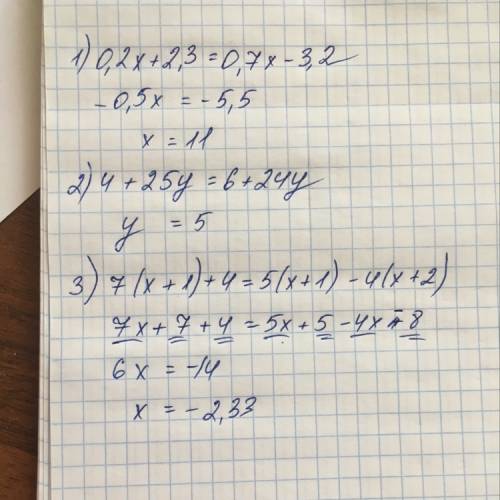 1) 0,2x+2,3=0,7x-3,2
-0,5x = -5,5
x = 11
2) 4+25y=6+24y
y = 5
3) 7(x+1)+4=5(x+1)-4(x+2)
7x+7+4=5x+5-4x-8
6x = -14
x = -2,33